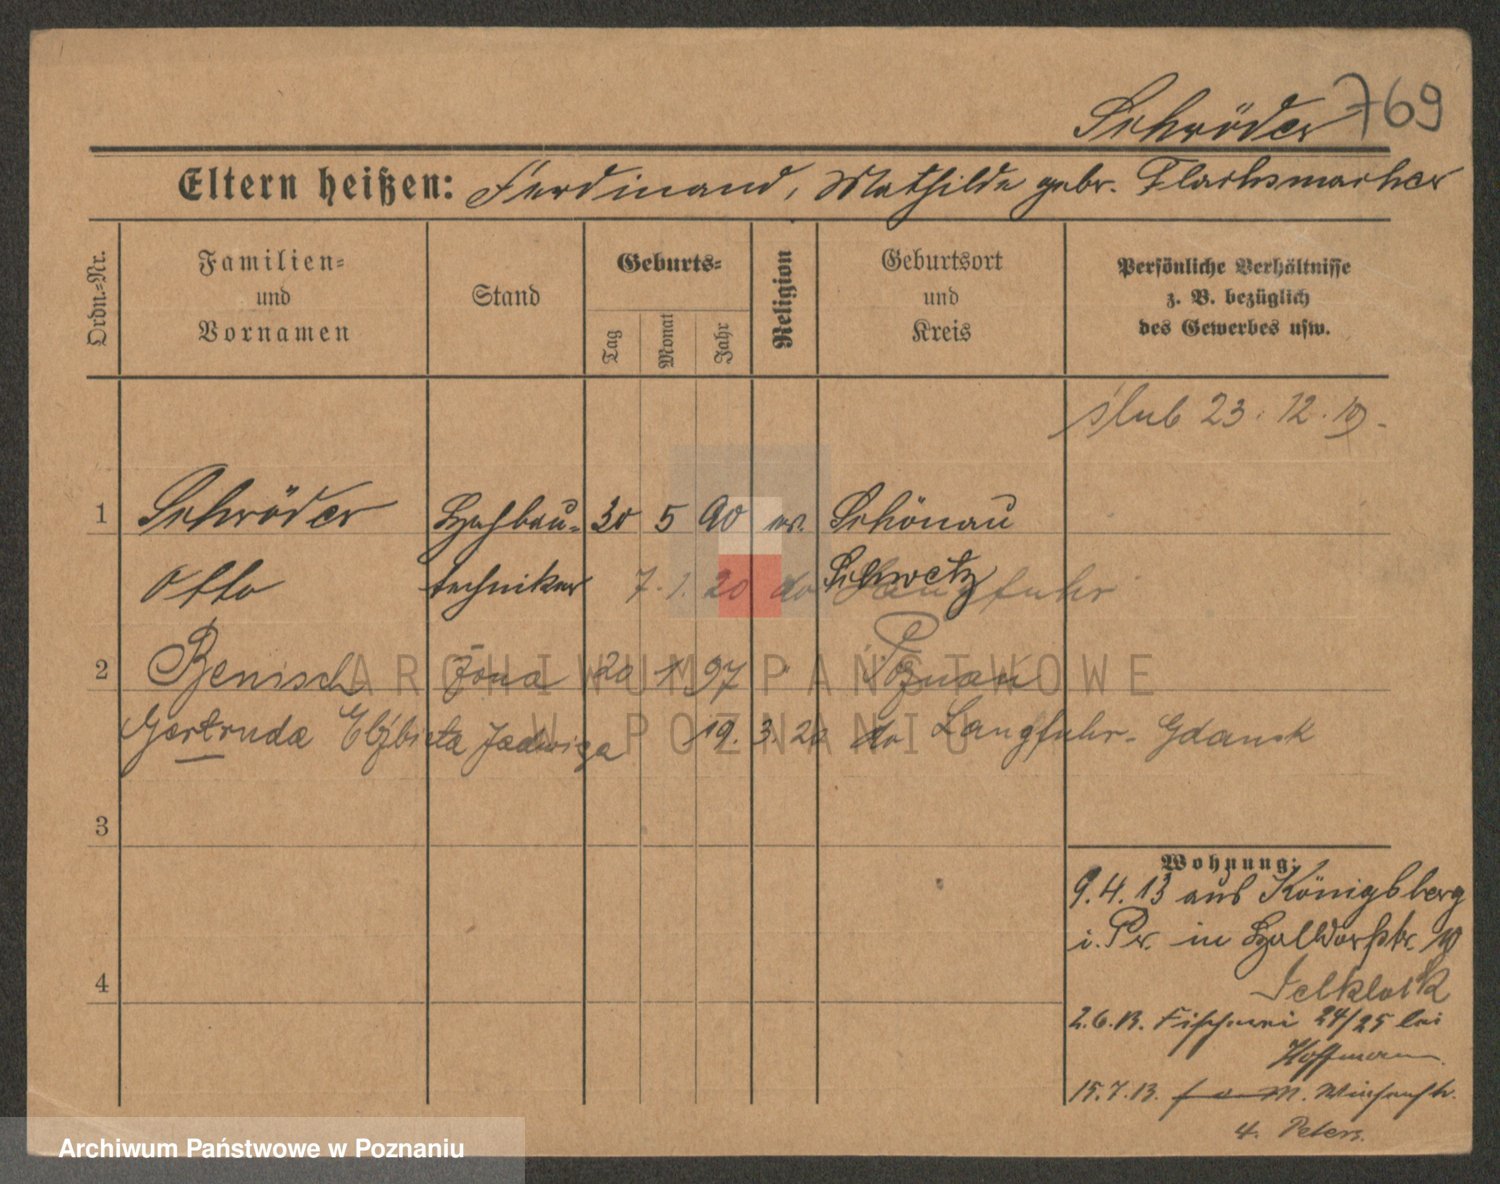 Schröder 769
Eltern heißen: Ferdinand, Mathilde gebr. Flachsmacher
Ordn.-Nr.
Familien-
und
Vornamen
Stand
Geburts-
Tag
Monat
Jahr
Religion
Geburtsort
und
Kreis
Persönliche Verhältnisse
z. B. bezüglich
des Gewerbes usw.
ślub 23.12.19.
1 Schröder Hochbau- 30 5 90 ev. Schönau
Otto techniker 7. 1. 20 do Schwetz Langfuhr
2 Benisch żona 20 1 97 Poznań
Gertruda Elżbieta Jadwiga 19. 3. 20 do Langfuhr - Gdansk
3
4
Wohnung:
9.4.13 aus Königsberg
i. Pr. in
2.6.13. Fischerei 24/25 bei
Hoffmann.
15.7.13.
4. Peters.
ARCHIWUM PAŃSTWOWE
W POZNANIU
Archiwum Państwowe w Poznaniu